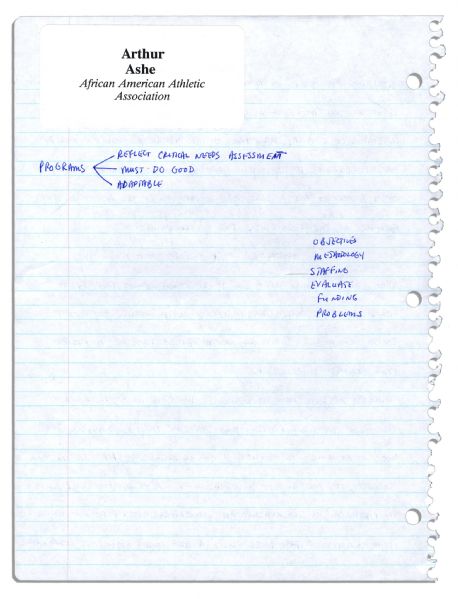 Arthur
Ashe
African American Athletic
Association
REFLECT CRITICAL NEEDS ASSESSMENT
PROGRAMS
MUST DO GOOD
ADAPTABLE
OBJECTIVES
METHODOLOGY
STAFFING
EVALUATE
FUNDING
PROBLEMS